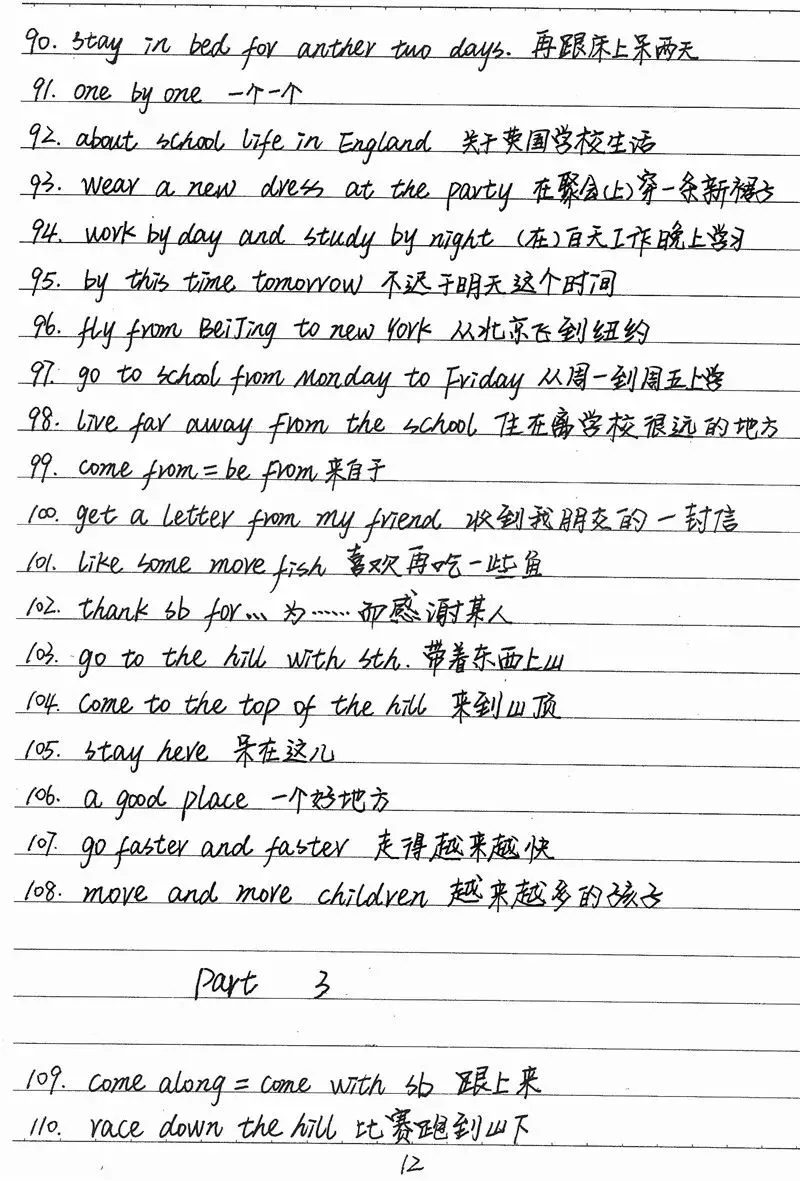 90. stay in bed for anther two days. 再跟床上呆两天
91. one by one 一个一个
92. about school life in England 关于英国学校生活
93. wear a new dress at the party 在聚会(上)穿一条新裙子
94. work by day and study by night (在)白天工作晚上学习
95. by this time tomorrow 不迟于明天这个时间
96. fly from BeiJing to new York 从北京飞到纽约
97. go to school from Monday to Friday 从周一到周五上学
98. live far away from the school 住在离学校很远的地方
99. come from = be from 来自于
100. get a letter from my friend 收到我朋友的一封信
101. like some more fish 喜欢再吃一些鱼
102. thank sb for... 为……而感谢某人
103. go to the hill with sth. 带着东西上山
104. come to the top of the hill 来到山顶
105. stay here 呆在这儿
106. a good place 一个好地方
107. go faster and faster 走得越来越快
108. more and more children 越来越多的孩子
Part 3
109. come along = come with sb 跟上来
110. race down the hill 比赛跑到山下
12